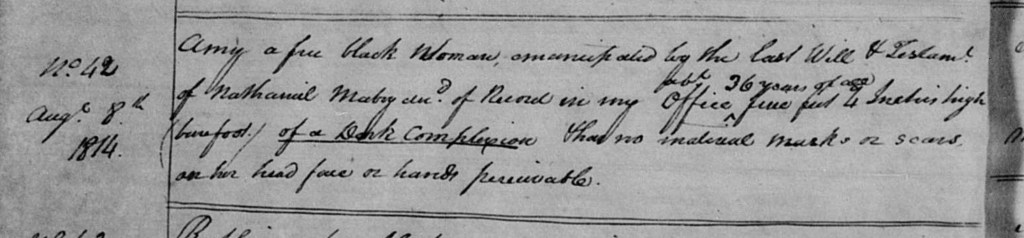 No. 42
Augt. 8th
1814.
Amy a free black Woman, emancipated by the last Will & Testamt.
of Nathaniel Mabry decd. of Record in my Office abt. 36 years of age five feet 4 Inches high
(barefoot) of a Dark Complexion has no material marks or scars
on her head face or hands perceivable.